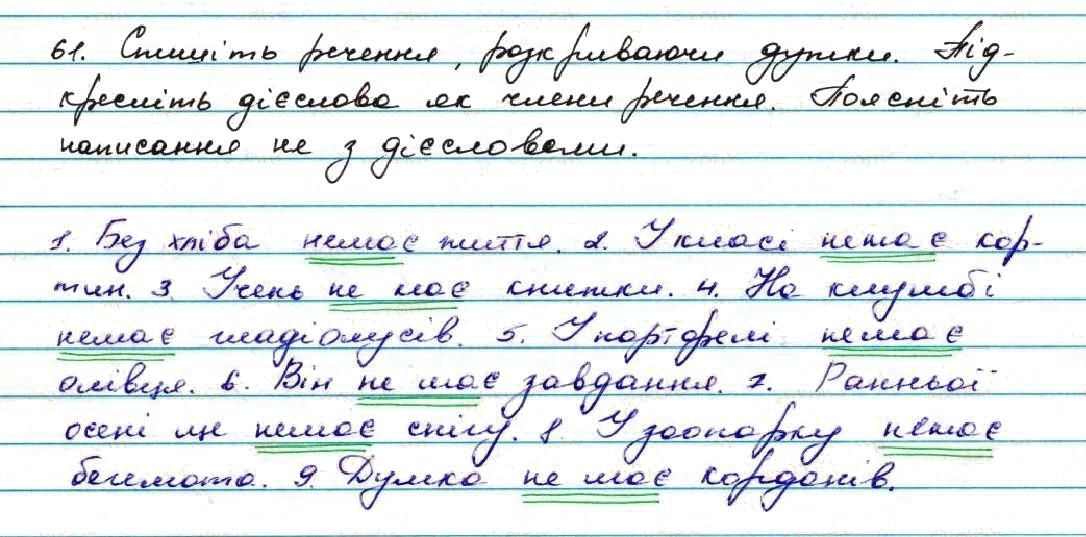 61. Спишіть речення, розкриваючи дужки. Під-
кресліть дієслова як члени речення. Поясніть
написання не з дієсловами.
1. Без хліба немає життя. 2. У класі немає кар-
тин. 3. Учень не має книжки. 4. На клумбі
немає гладіолусів. 5. У портфелі немає
олівця. 6. Він не має завдання. 7. Ранньої
осені ще немає снігу. 8. У зоопарку немає
бегемота. 9. Думка не має кордонів.